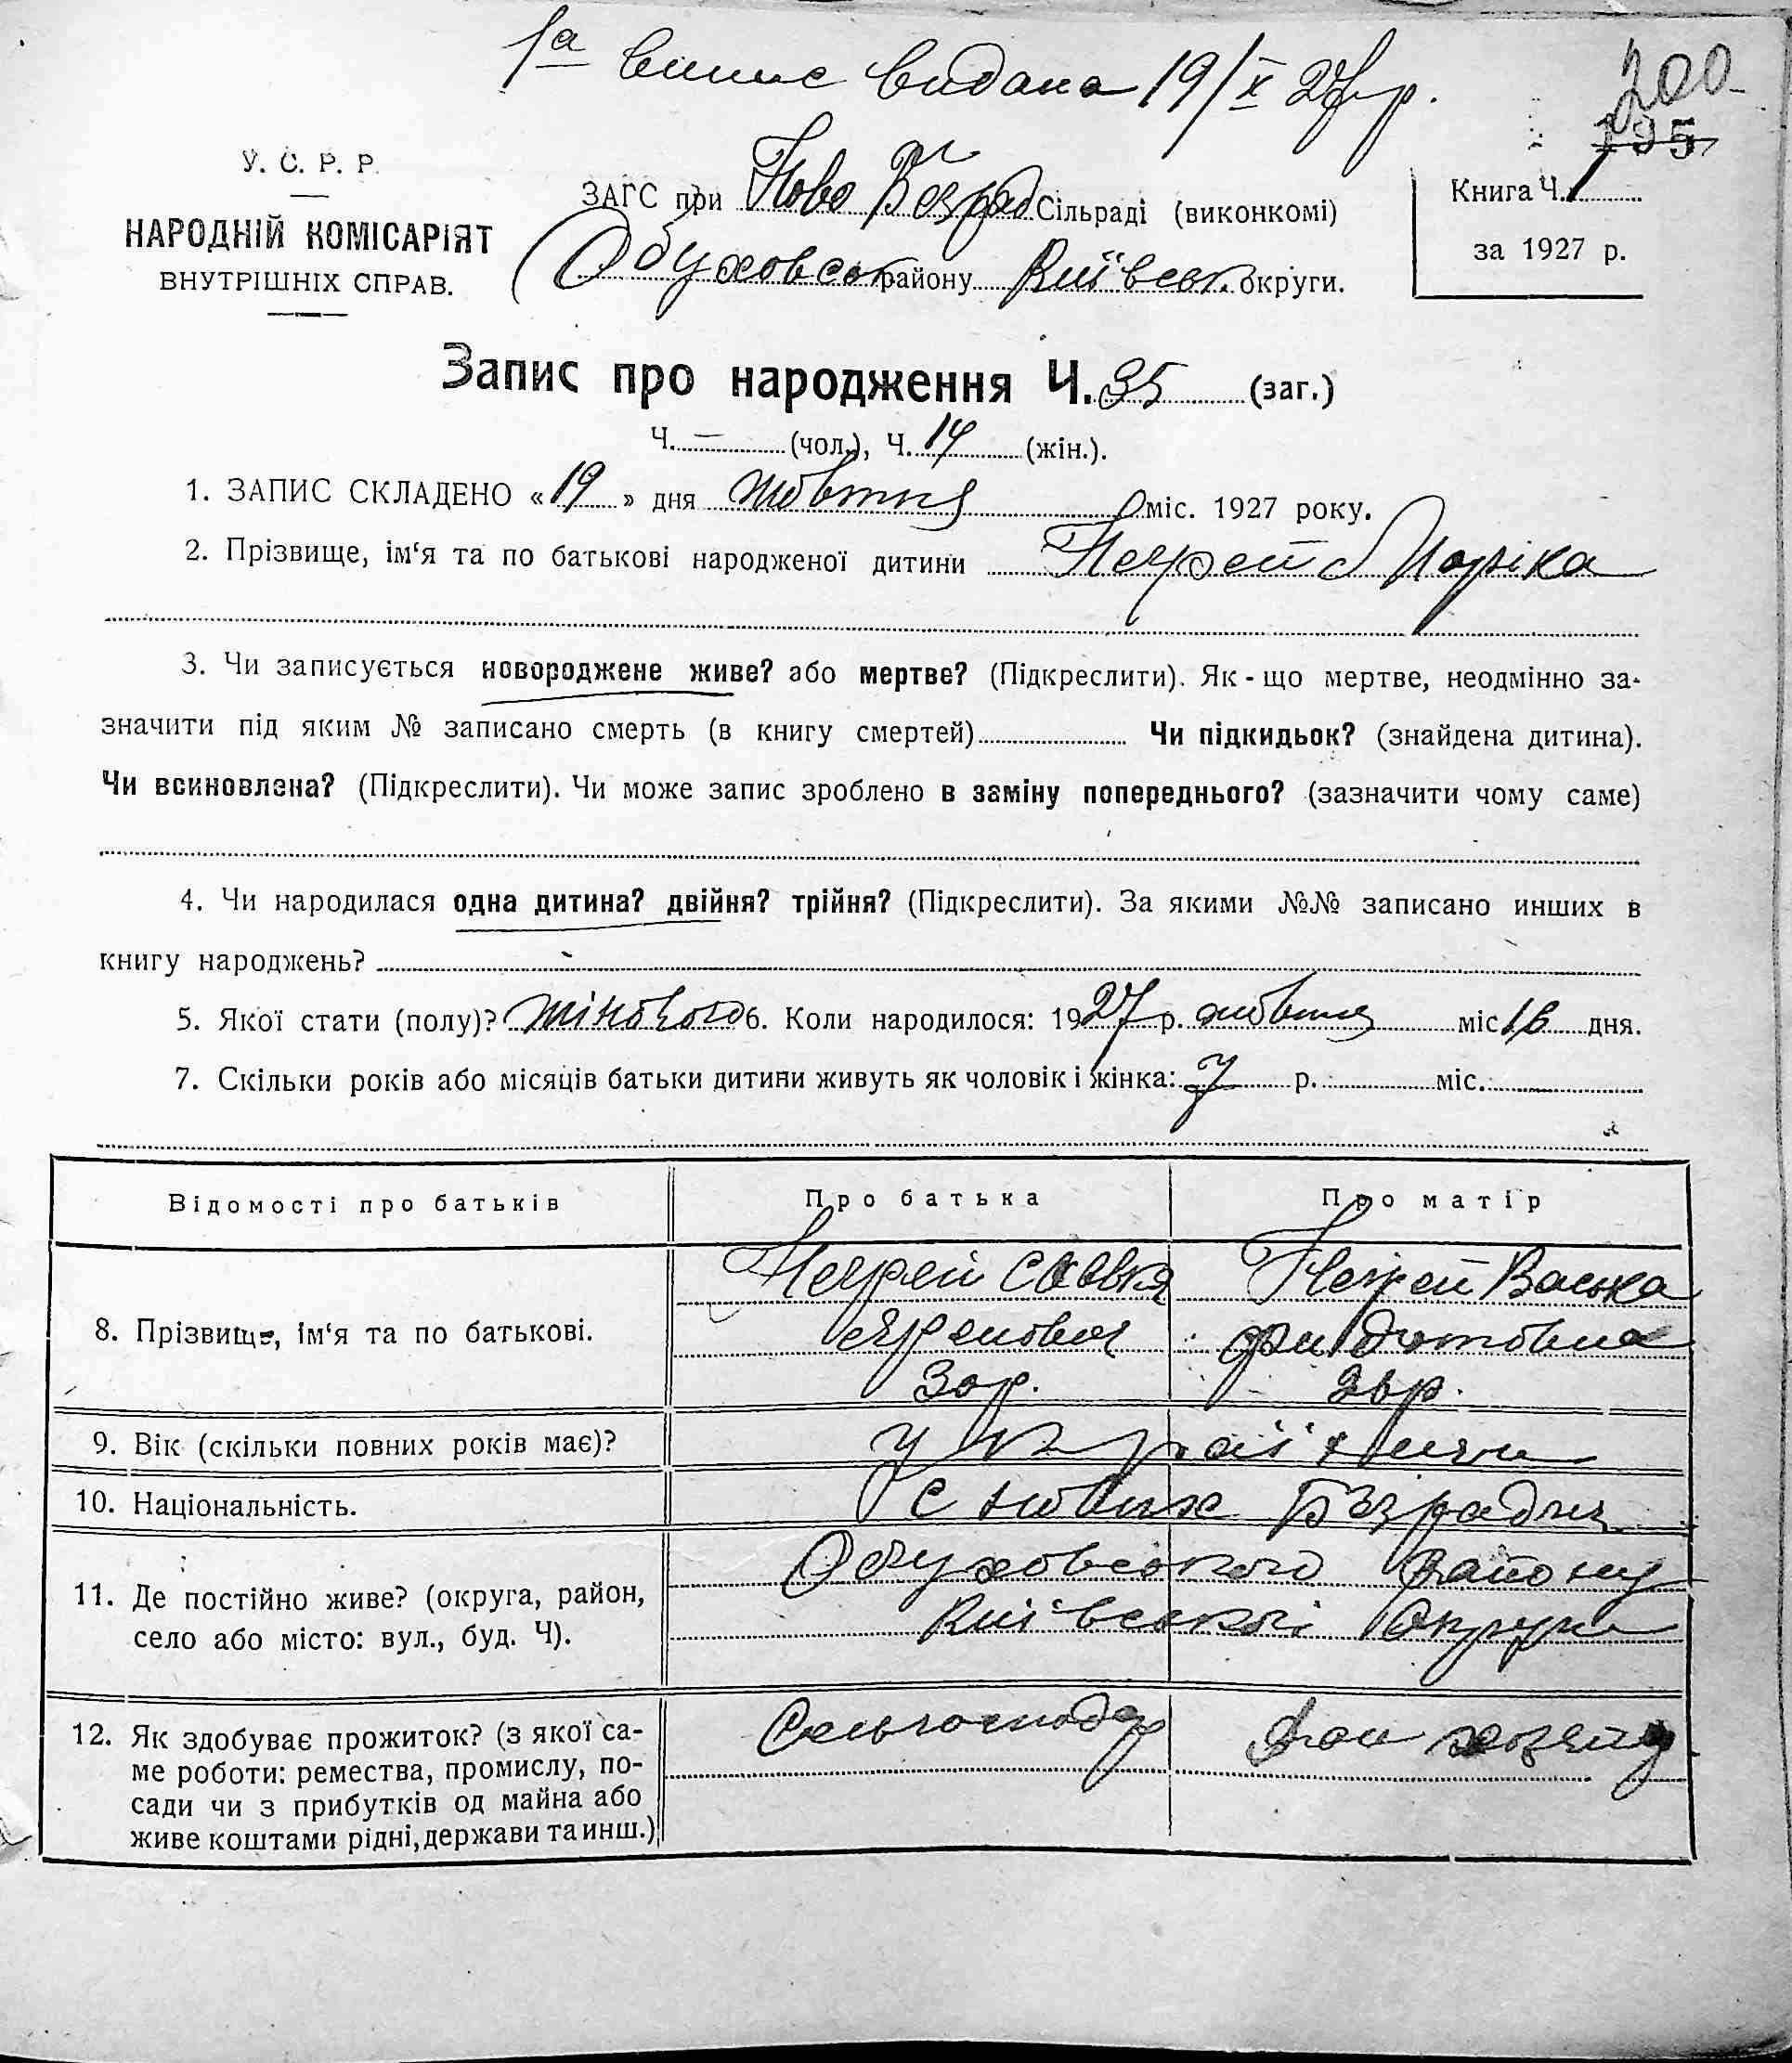 1а випис видана 19/X 27 р.
200
195
У. С. Р. Р.
НАРОДНІЙ КОМІСАРІЯТ
ВНУТРІШНІХ СПРАВ.
ЗАГС при Ново Безрад Сільраді (виконкомі)
Обуховськ району Київськ. округи.
Книга Ч. 1
за 1927 р.
Запис про народження Ч. 35 (заг.)
Ч. — (чол.), Ч. 14 (жін.).
1. ЗАПИС СКЛАДЕНО «19» дня жовтня міс. 1927 року.
2. Прізвище, ім‘я та по батькові народженої дитини
3. Чи записується новороджене живе? або мертве? (Підкреслити). Як-що мертве, неодмінно за-
значити під яким № записано смерть (в книгу смертей) Чи підкидьок? (знайдена дитина).
Чи всиновлена? (Підкреслити). Чи може запис зроблено в заміну попереднього? (зазначити чому саме)
4. Чи народилася одна дитина? двійня? трійня? (Підкреслити). За якими №№ записано инших в
книгу народжень?
5. Якої стати (полу)? жіночого 6. Коли народилося: 1927 р. жовтня міс 16 дня.
7. Скільки років або місяців батьки дитини живуть як чоловік і жінка: 7 р. міс.
Відомості про батьків Про батька Про матір
8. Прізвище, ім‘я та по батькові. Савка Васька
9. Вік (скільки повних років має)?
10. Національність.
с нових Безрадич
11. Де постійно живе? (округа, район,
село або місто: вул., буд. Ч).
Обуховського району
Київської округи
12. Як здобуває прожиток? (з якої са-
ме роботи: ремества, промислу, по-
сади чи з прибутків од майна або
живе коштами рідні, держави та инш.)